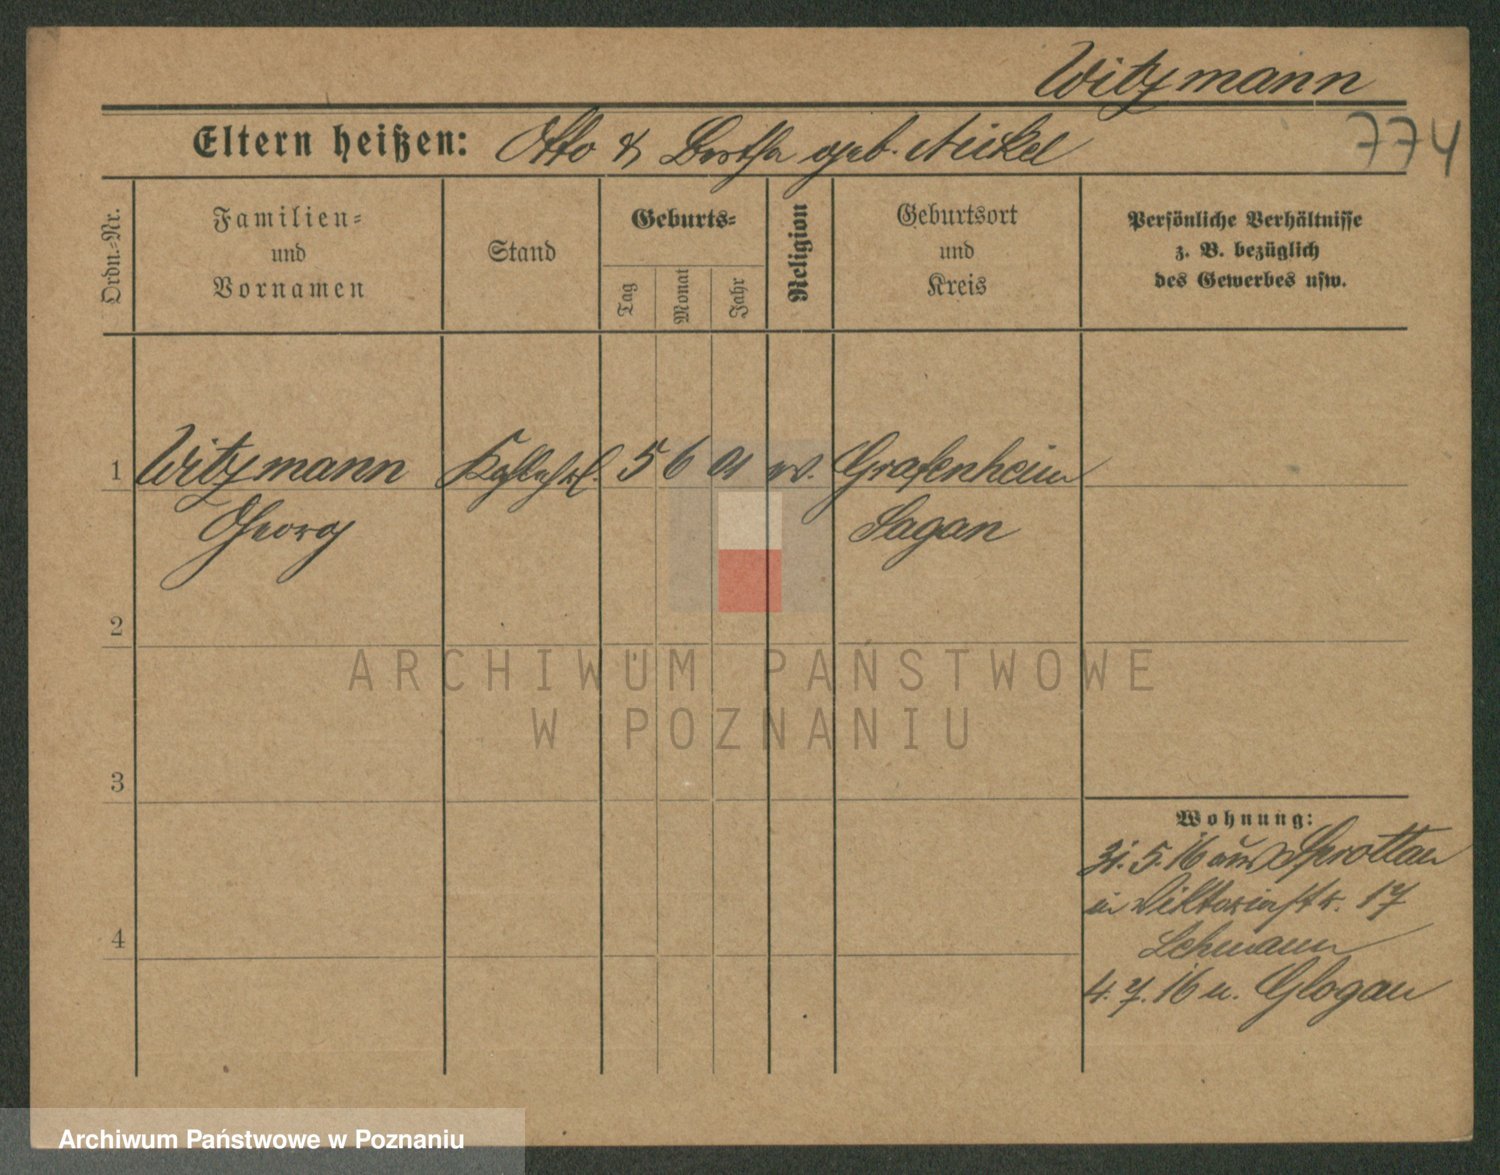 Witzmann
Eltern heißen: Otto & Bertha geb. Nickel
774
Ordn.-Nr.
Familien-
und
Vornamen
Stand
Geburts-
Tag
Monat
Jahr
Religion
Geburtsort
und
Kreis
Persönliche Verhältnisse
z. B. bezüglich
des Gewerbes usw.
1 Witzmann 5 6 01 ev. Grafenhein
Georg Sagan
2
3
4
Wohnung:
31. 5. 16 aus Sprottau
in Viktoriastr. 17
Lehmann
4. 7. 16 n. Glogau
ARCHIWUM PAŃSTWOWE
W POZNANIU
Archiwum Państwowe w Poznaniu